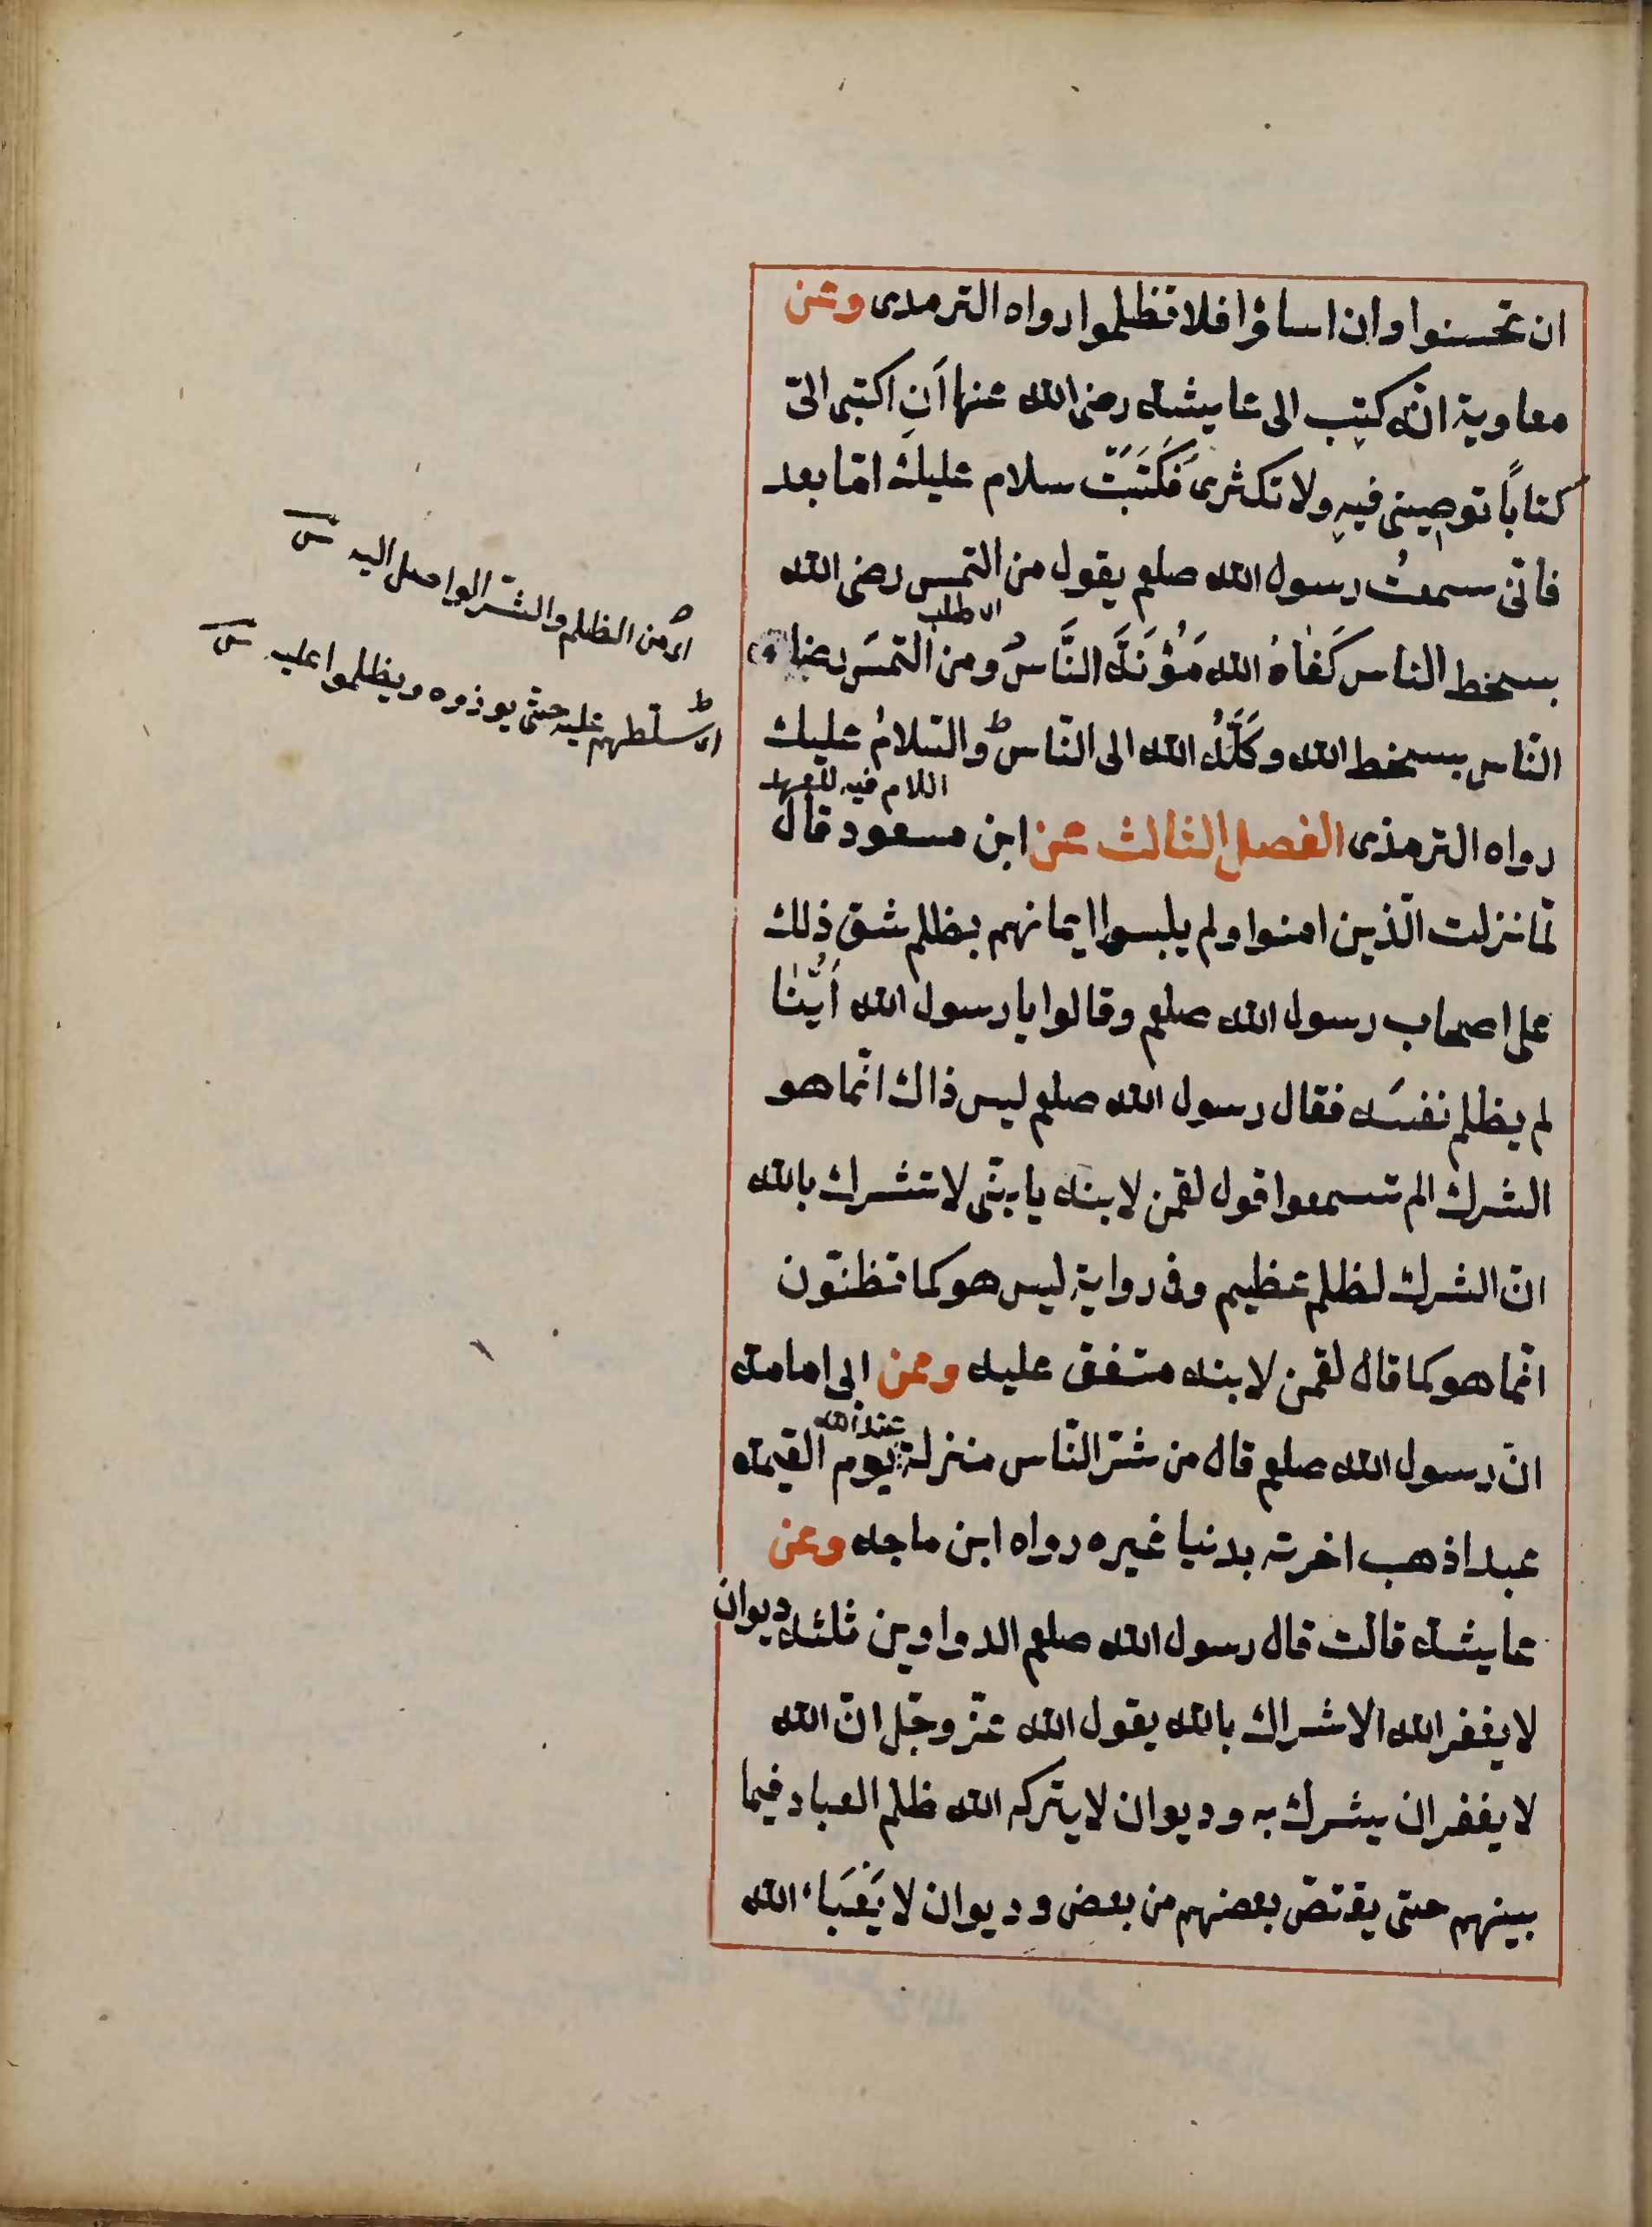 ان تحسنوا وان اساؤا فلا تظلموا رواه الترمدى وعن
معاوية انّه كتب الى عايشة رضى الله عنها اَنِ اكتبى الىّ
كتاباً توصينى فيه ولا تكثرى فَكَتَبَتْ سلام عليك امّا بعد
فانّى سمعتُ رسول الله صلعم يقول من التمس رضى الله
اى طلب
بسخط الناس كَفَاهُ الله مَؤُنَةَ النَّاس ومن التمسَ رضا
الناس بسخط الله وكَلَهُ الله الى النّاس والسّلامُ عليك
اللام فيه للعهد
رواه الترمذى الفصل الثالث عن ابن مسعود قال
لمّا نزلت الّذين امنوا ولم يلبسوا ايمانهم بظلم شق ذلك
على اصحاب رسول الله صلعم وقالوا يا رسول الله اَيُّنَا
لم يظلم نفسَه فقال رسول الله صلعم ليس ذاك انّما هو
الشرك الم تسمعوا قول لقمن لابنه يا بنّى لا تشرك بالله
انّ الشرك لظلم عظيم وفى رواية ليس هو كما تظنّون
انّما هو كما قال لقمن لابنه متفق عليه وعن ابى امامة
انّ رسول الله صلعم قال من شرّ النّاس منزلة عند الله يوم القيمة
عبد اذهب اخرته بدنيا غيره رواه ابن ماجه وعن
عايشة قالت قال رسول الله صلعم الدواوين ثلثة ديوان
لا يغفر الله الاشراك بالله يقول الله عزّ وجلّ انّ الله
لا يغفر ان يشرك به وديوان لا يتركه الله ظلم العباد فيما
بينهم حتى يقتصّ بعضهم من بعض وديوان لا يَعْبَاء الله
اى من الظلم والشرّ الواصل اليه
اى سلّطهم عليه حتى يوذوه ويظلموا عليه